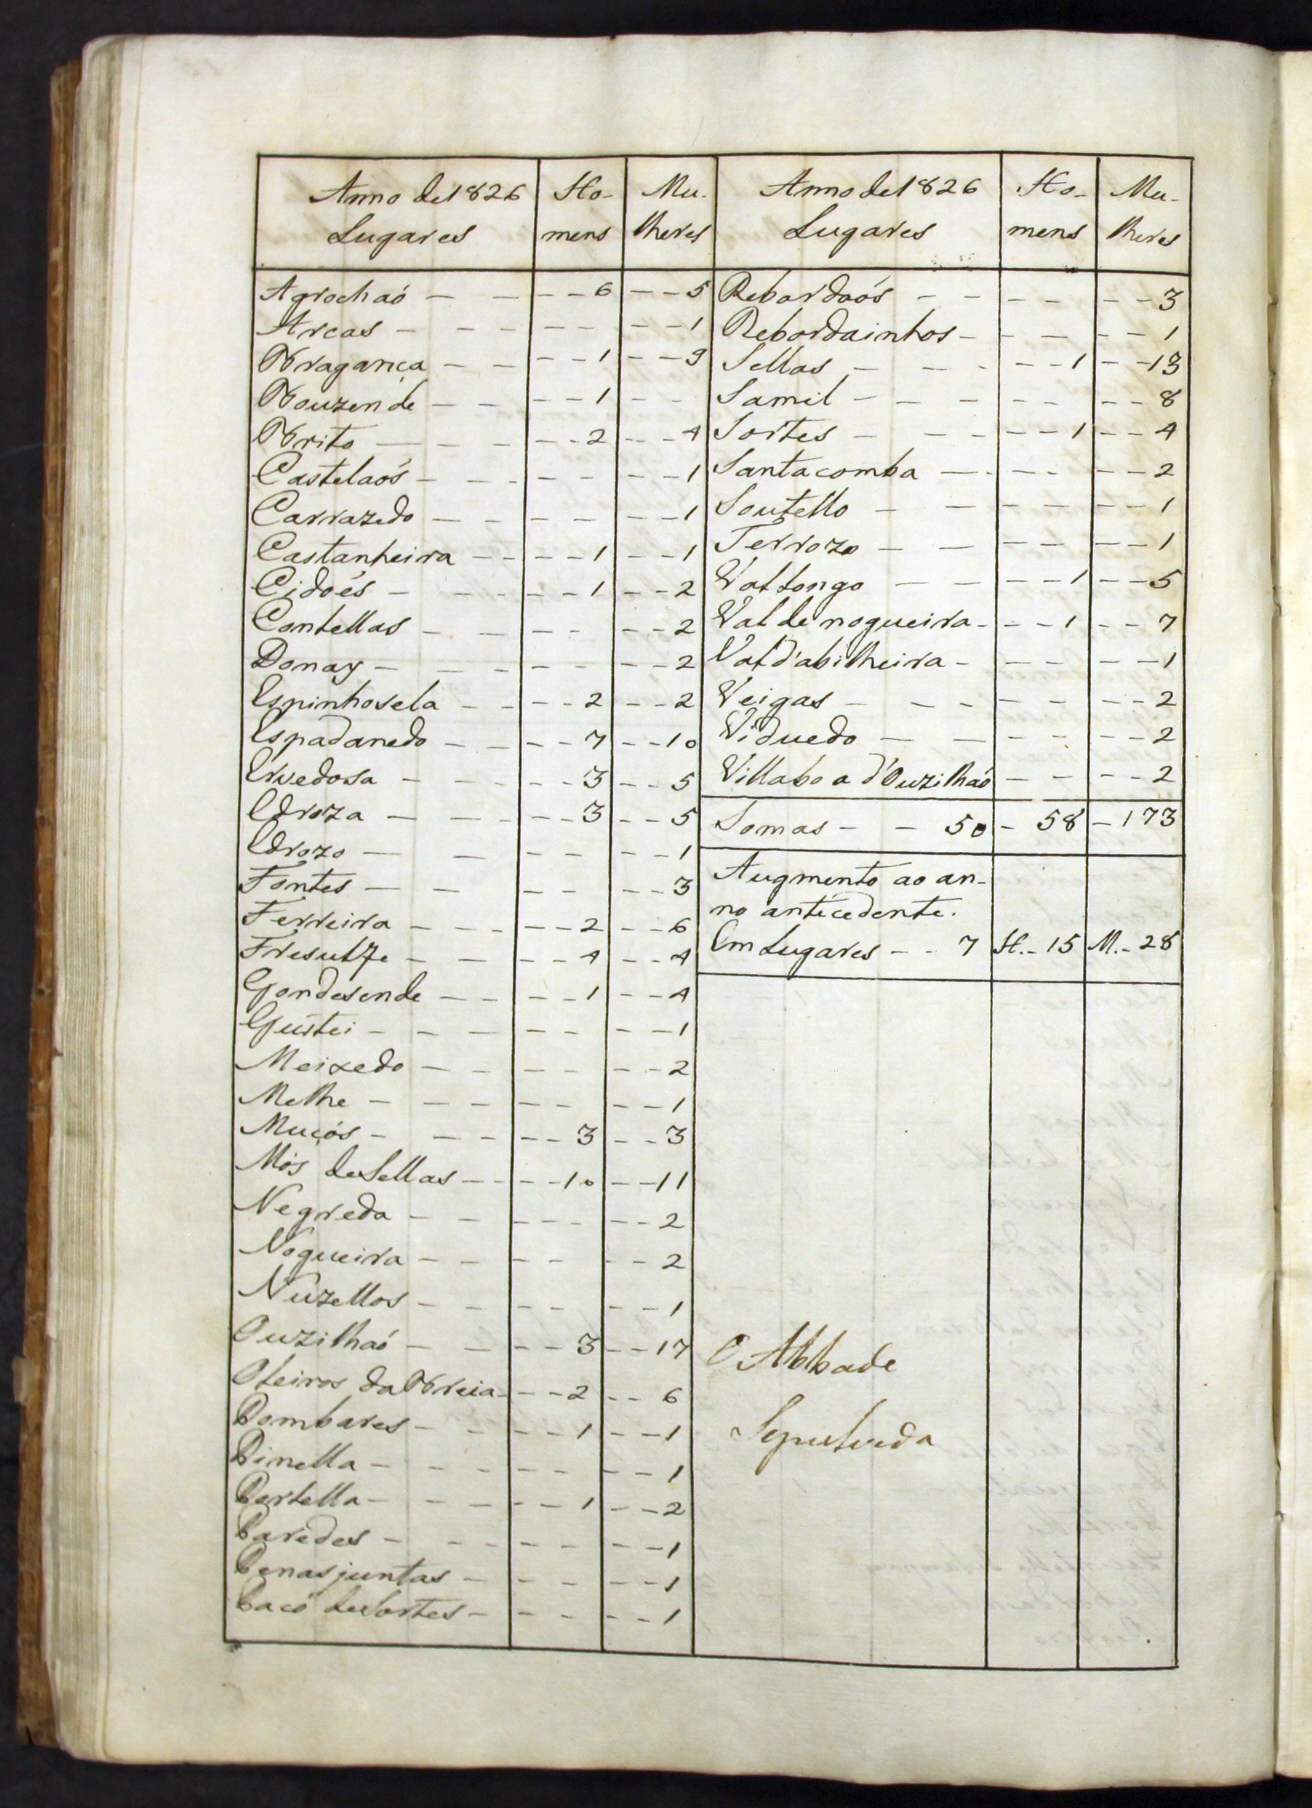 Anno de 1826 Ho- Mu-
Lugares mens lheres
Agrochaó - - - - - 6 - - 5
Arcas - - - - - - - - 1
Bragança - - - - 1 - - 9
Bouzende - - - - 1 - -
Brito - - - - - 2 - - 4
Castelaós - - - - - - - 1
Carrazedo - - - - - - 1
Castanheira - - - - 1 - - 1
Cidoés - - - - - 1 - - 2
Contellas - - - - - - 2
Donay - - - - - - - 2
Espinhosela - - - - 2 - - 2
Espadanedo - - - - 7 - - 10
Ervedosa - - - - - 3 - - 5
Edroza - - - - - 3 - - 5
Edrozo - - - - - - 1
Fontes - - - - - - 3
Ferreira - - - - - 2 - - 6
Fresulfe - - - - - 4 - - 4
Gondesende - - - - 1 - - 4
Gustei - - - - - - - 1
Meixedo - - - - - - - 2
Melhe - - - - - - - - 1
Muçós - - - - - 3 - - 3
Mós de Sellas - - - - 10 - - 11
Negreda - - - - - - - 2
Nogueira - - - - - - - 2
Nuzellos - - - - - - - 1
Ouzilhaó - - - - 3 - - 17
Oteiros da Breia - - - 2 - - 6
Pombares - - - - - 1 - - 1
Pinella - - - - - - - - 1
Portella - - - - - 1 - - 2
Paredes - - - - - - - 1
Penas juntas - - - - - - 1
Paço de Sortes - - - - - - 1
Anno de 1826 Ho- Mu-
Lugares mens lheres
Rebordaós - - - - - - 3
Rebordainhos - - - - - 1
Sellas - - - - - 1 - - 13
Samil - - - - - - - 8
Sortes - - - - - 1 - - 4
Santacomba - - - - - - 2
Soutello - - - - - - 1
Terrozo - - - - - - 1
Vallongo - - - - 1 - - 5
Val de nogueira - - - 1 - - 7
Val d'abilheira - - - - - 1
Veigas - - - - - - - 2
Viduedo - - - - - - 2
Villaboa d'Ouzilhaó - - - - 2
Somas - - 50 - 58 - 173
Augmento ao an-
no antecedente.
Em Lugares - - 7 H. - 15 M. - 28
O Abbade
Sepulveda